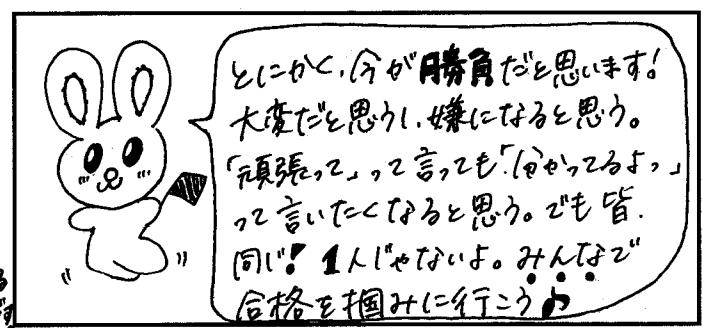 とにかく、今が勝負だと思います!
大変だと思うし、嫌になると思う。
「頑張って」って言っても「分かってるよっ」
って言いたくなると思う。でも皆、
同じ!1人じゃないよ。みんなで
合格を掴みに行こう♪